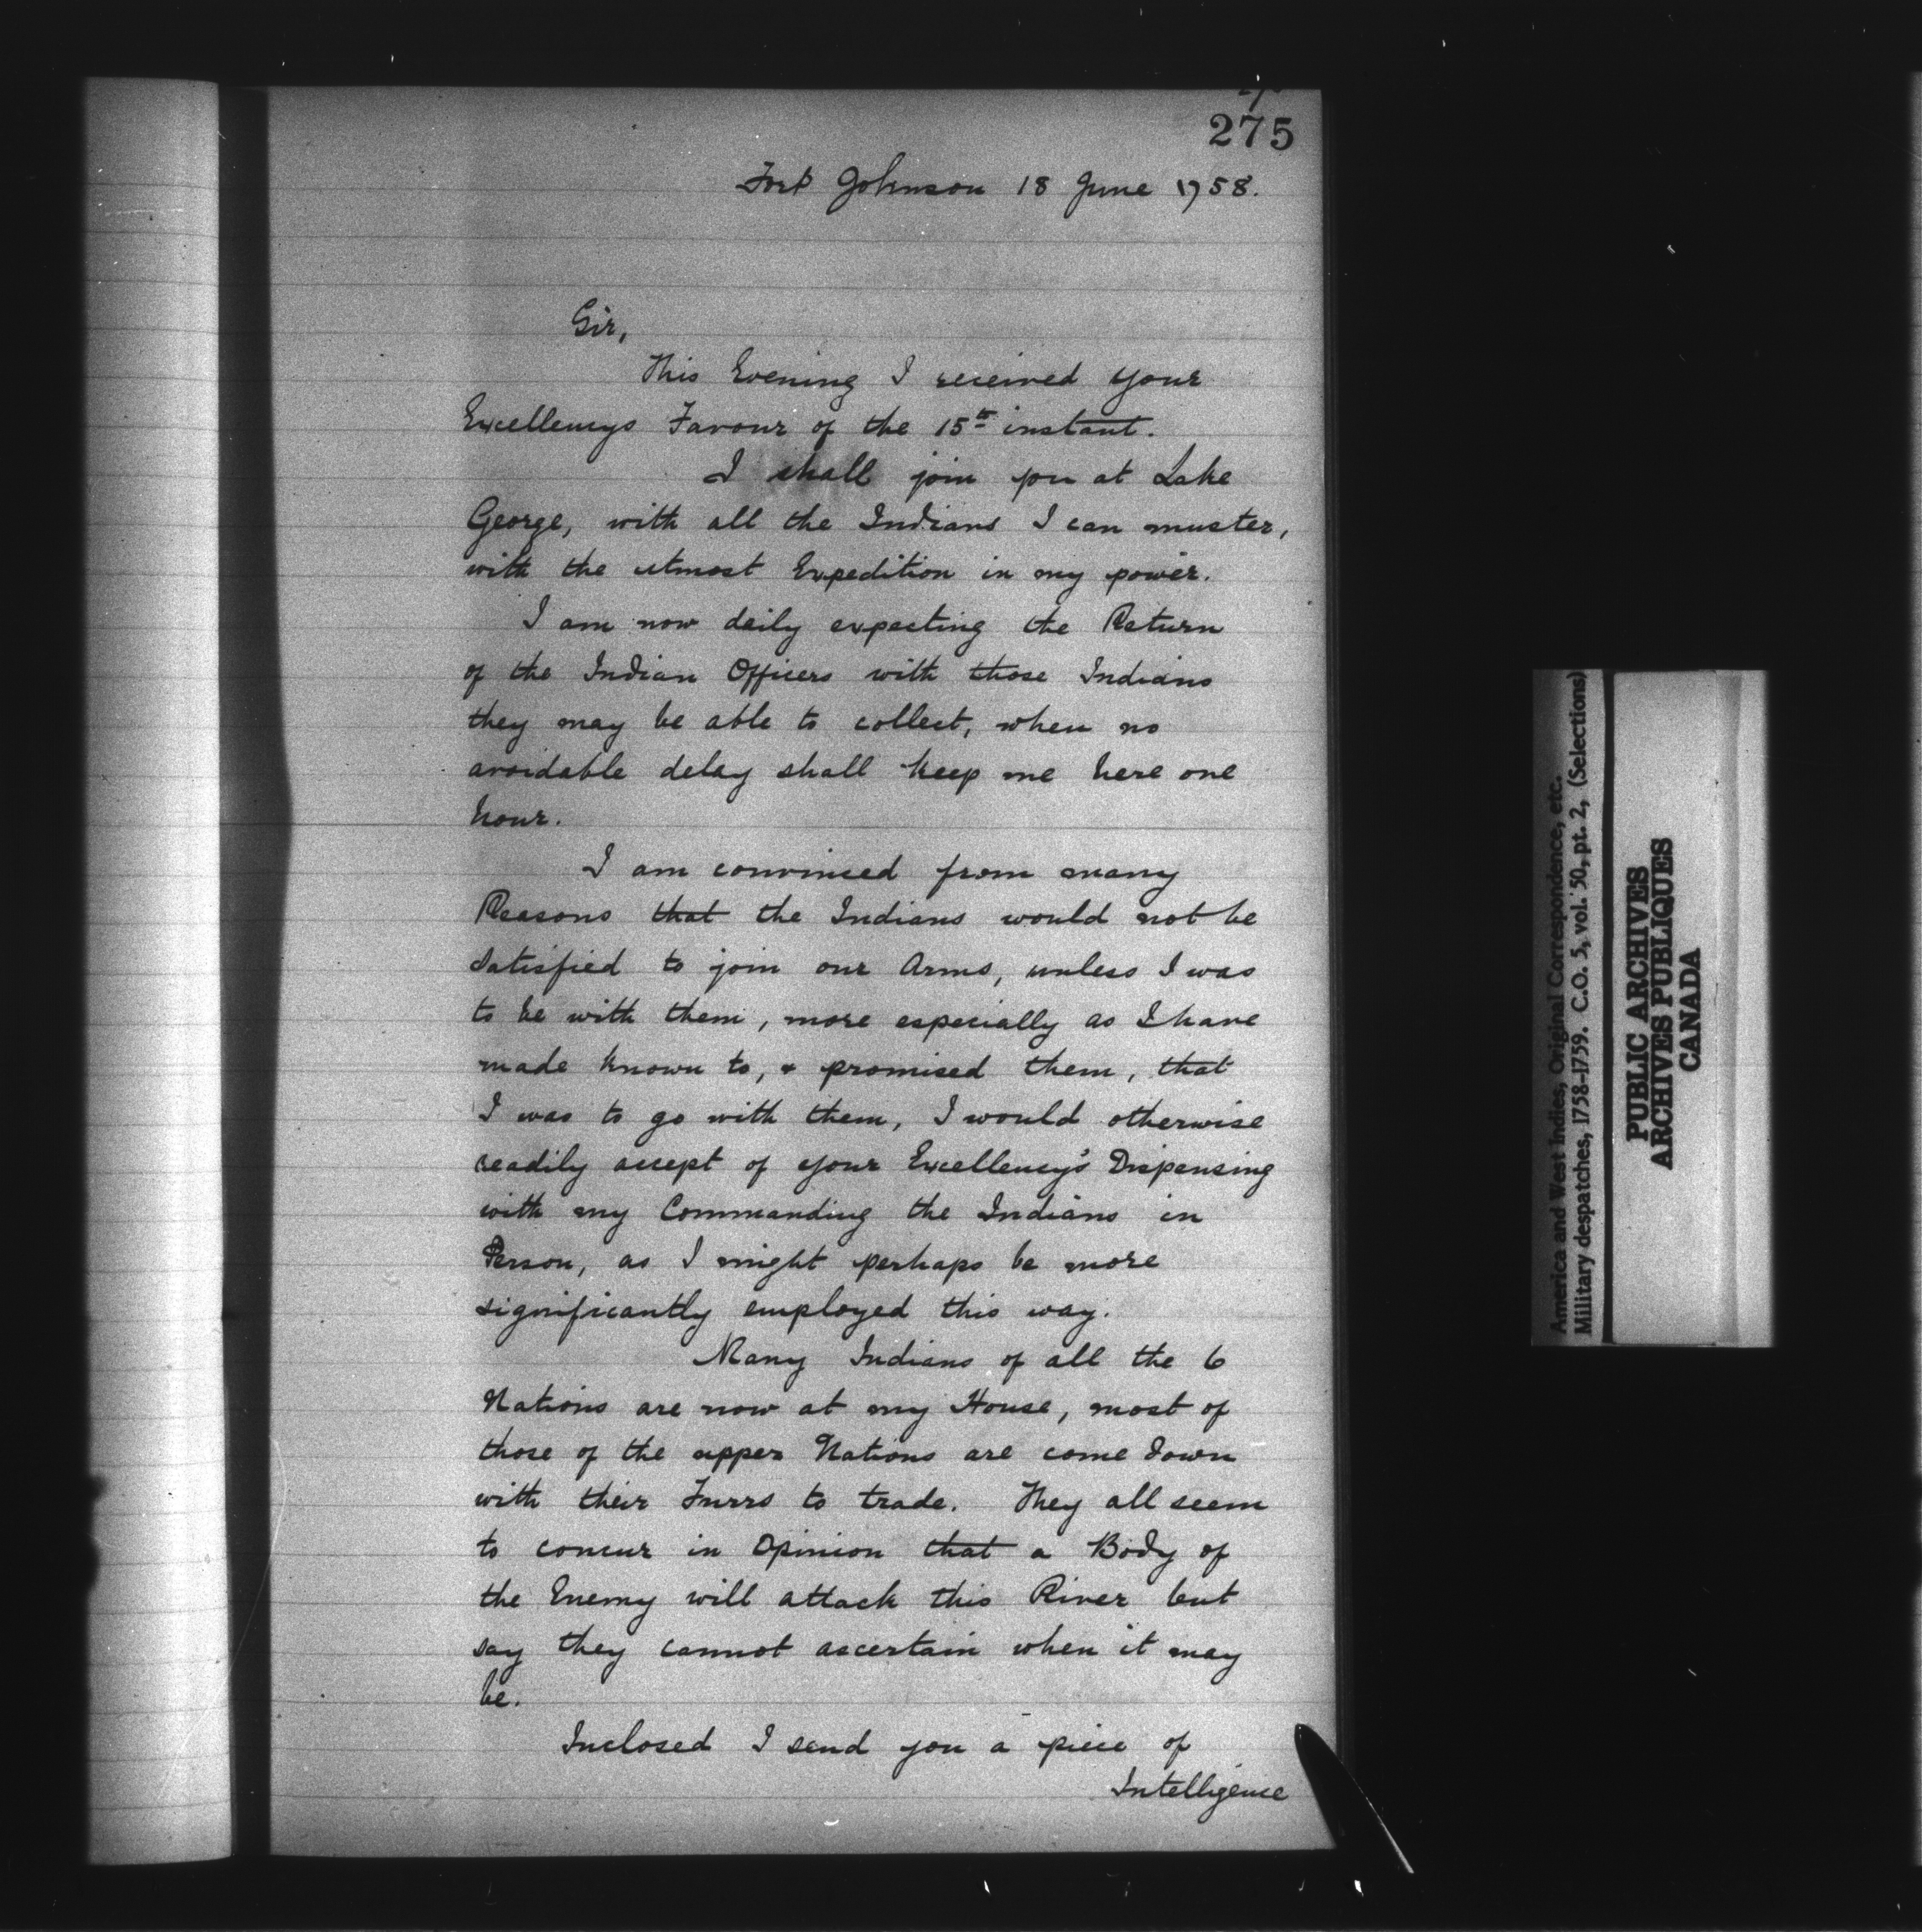 275
Fort Johnson 18 June 1758.
Sir,
This Evening I received your
Excellencys Favour of the 15th instant.
I shall join you at Lake
George, with all the Indians I can muster,
with the utmost Expedition in my power.
I am now daily expecting the Return
of the Indian Officers with those Indians
they may be able to collect, when no
avoidable delay shall keep me here one
hour.
I am convinced from many
Reasons that the Indians would not be
satisfied to join our Arms, unless I was
to be with them, more especially as I have
made known to, & promised them, that
I was to go with them, I would otherwise
readily accept of your Excellency's Dispensing
with my Commanding the Indians in
Person, as I might perhaps be more
significantly employed this way.
Many Indians of all the 6
Nations are now at my House, most of
those of the upper Nations are come down
with their Furrs to trade. They all seem
to concur in Opinion that a Body of
the Enemy will attack this River but
say they cannot ascertain when it may
be.
Inclosed I send you a piece of
Intelligence
America and West Indies, Original Correspondence, etc.
Military despatches, 1758-1759. C.O. 5, vol. 50, pt. 2, (Selections)
PUBLIC ARCHIVES
ARCHIVES PUBLIQUES
CANADA